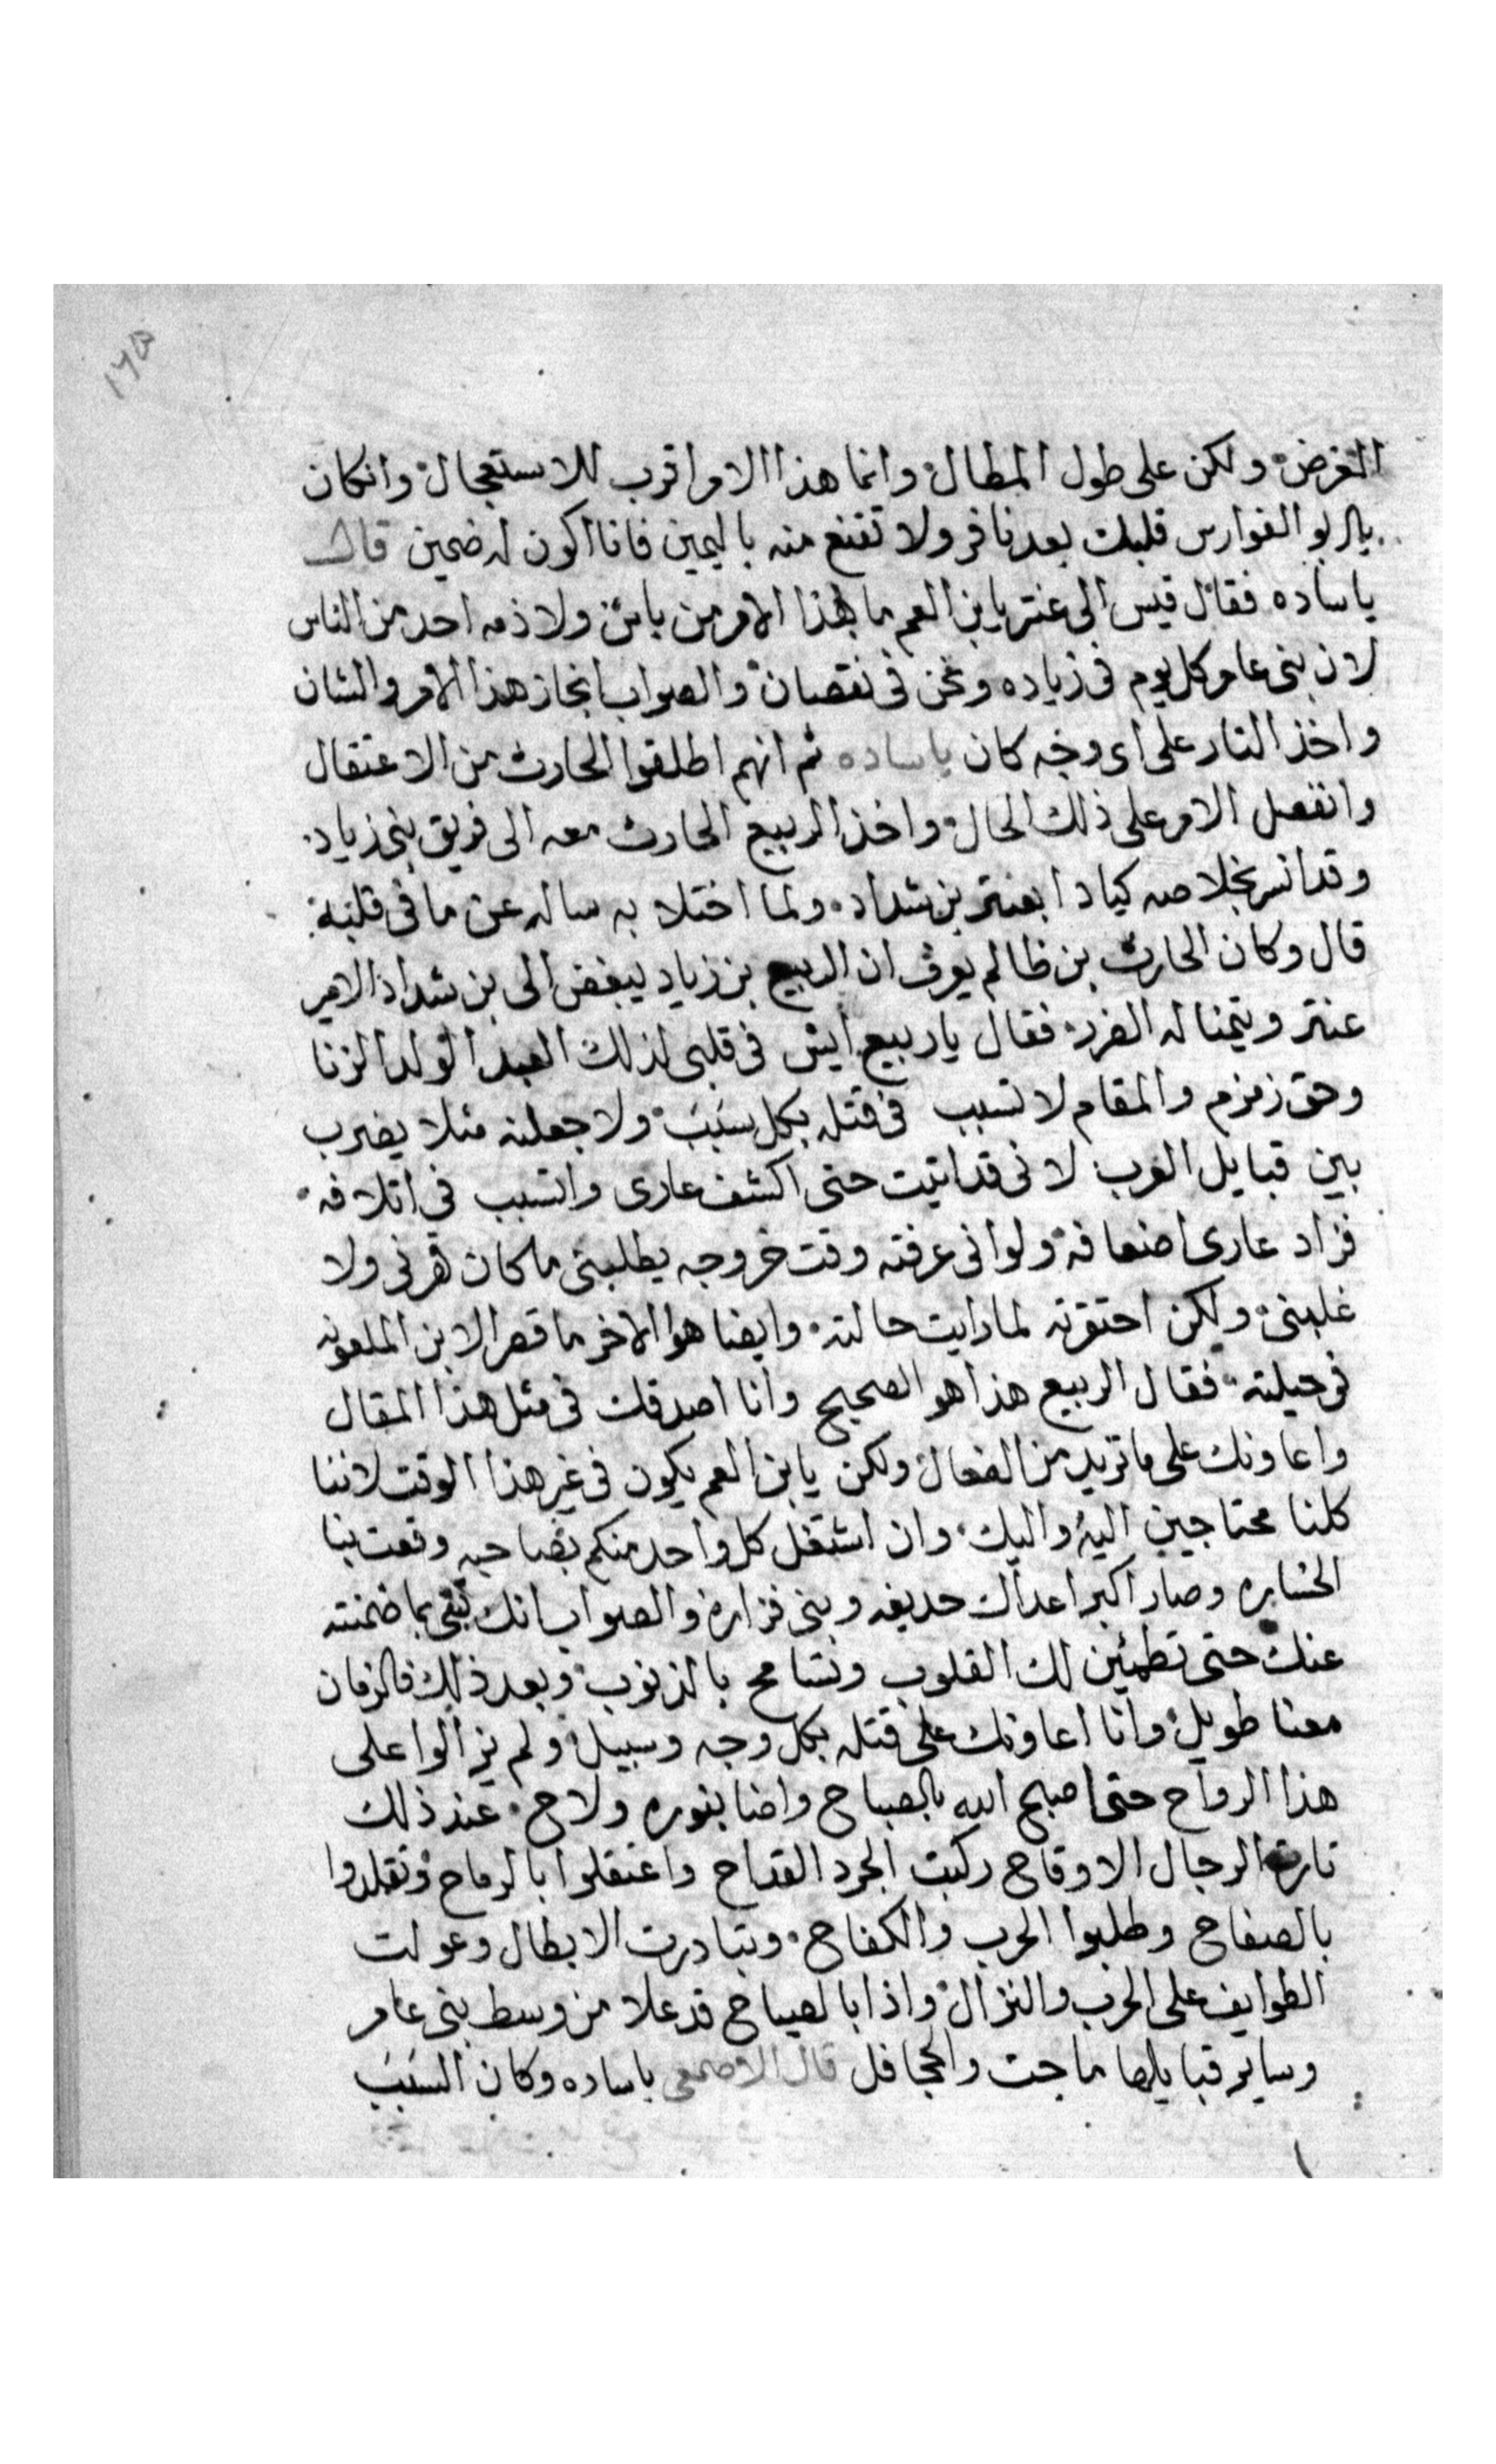 ١٢٥
الغرض ولكن على طول المطال وانما هذا الامر اقرب للاستعجال وانكان
يابو الفوارس قلبك بعد نافر ولا تقنع منه باليمين فانا اكون له ضمين قال
ياساده فقال قيس الى عنتر يابن العم ما بهذا الامر من باس ولا ذمه احد من الناس
لان بنى عامر كل يوم فى زياده ونحن فى نقصان والصواب انجاز هذا الامر والشان
واخذ التار على اى وجه كان ياساده ثم انهم اطلقوا الحارث من الاعتقال
وانفصل الامر على ذلك الحال واخذ الربيع الحارث معه الى فريق بنى زياد
وقد انسر بخلاصه كيادا بعنتر بن شداد ولما اختلا به ساله عن ما فى قلبه
قال وكان الحارث بن ظالم يعرف ان الربيع بن زياد يبغض الى بن شداد الامير
عنتر ويتمنا له الضرر فقال ياربيع ايش فى قلبى لذلك العبد الولد الزنا
وحق زمزم والمقام لا تسبب فى قتله بكل سبب ولا جعلنه مثلا يضرب
بين قبايل العرب لانى قد اتيت حتى اكشف عارى واتسبب فى اتلافه
فزاد عارى اضعافه ولو انى عرفته وقت خروجه يطلبنى ما كان قهرنى ولا
غلبنى ولكن احتقرته لما رايت حالته وايضا هو الاخر ما قصر الابن الملعونه
فى حيلته فقال الربيع هذا هو الصحيح وانا اصدقك فى مثل هذا المقال
واعاونك على ما تريد من الفعال ولكن يابن العم يكون فى غير هذا الوقت لاننا
كلنا محتاجين اليه واليك وان اشتغل كل واحد منكم بصاحبه وقعت بنا
الخساره وصار اكبر اعداك حديفه وبنى فزاره والصواب انك تبقى بما ضمنته
عنك حتى تطمئين لك القلوب ونتسامح بالذنوب وبعد ذلك فالزمان
معنا طويل وانا اعاونك على قتله بكل وجه وسبيل ولم يزالوا على
هذا الرواح حتى اصبح الله بالصباح واضا بنوره ولاح عند ذلك
تارت الرجال الاوقاح ركبت الجرد القداح واعتقلوا بالرماح وتقلدوا
بالصفاح وطلبوا الحرب والكفاح وتبادرت الابطال وعولت
الطوايف على الحرب والنزال واذا بالصياح قد علا من وسط بنى عامر
وساير قبايلها ماجت والجحافل قال الاصمعى ياساده وكان السبب